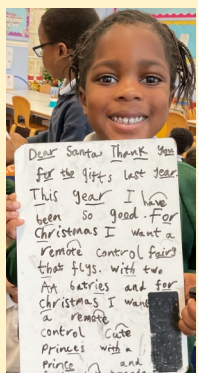 Dear Santa Thank you
for the gifts last year.
This year I have
been so good. For
Christomas I want a
remote control fairy
that flys. with two
AA batries and for
christmas I want
a remote
control cute
Princes with a
Prince and